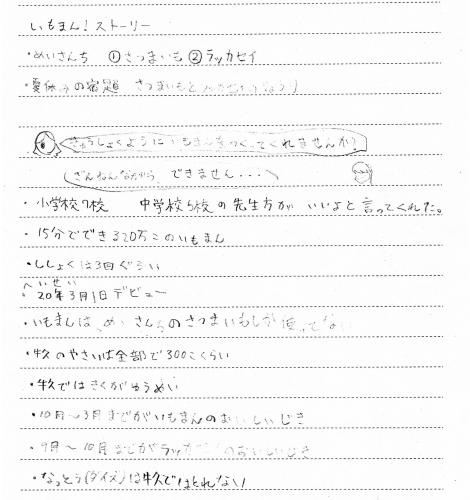 いもまん!ストーリー
・めいさんち ①さつまいも②ラッカセイ
・夏休みの宿題 さつまいもと
きゅうしょくようにいもまんをつくってくれませんか?
ざんねんながら、できません・・・
・小学校7校 中学校5校の先生方が いいよと言ってくれた。
・15分でできる20万このいもまん
・ししょくは3回ぐらい
へいせい
・20年3月1日デビュー
・いもまんは、めいさんちのさつまいもしか使ってない
・牛久のやさいは全部で300こくらい
・牛久ではきくがゆうめい
・10月〜3月までがいもまんのおいしいじき
・9月〜10月までがラッカセイのおいしいじき
・なっとう(ダイズ)は牛久ではとれない